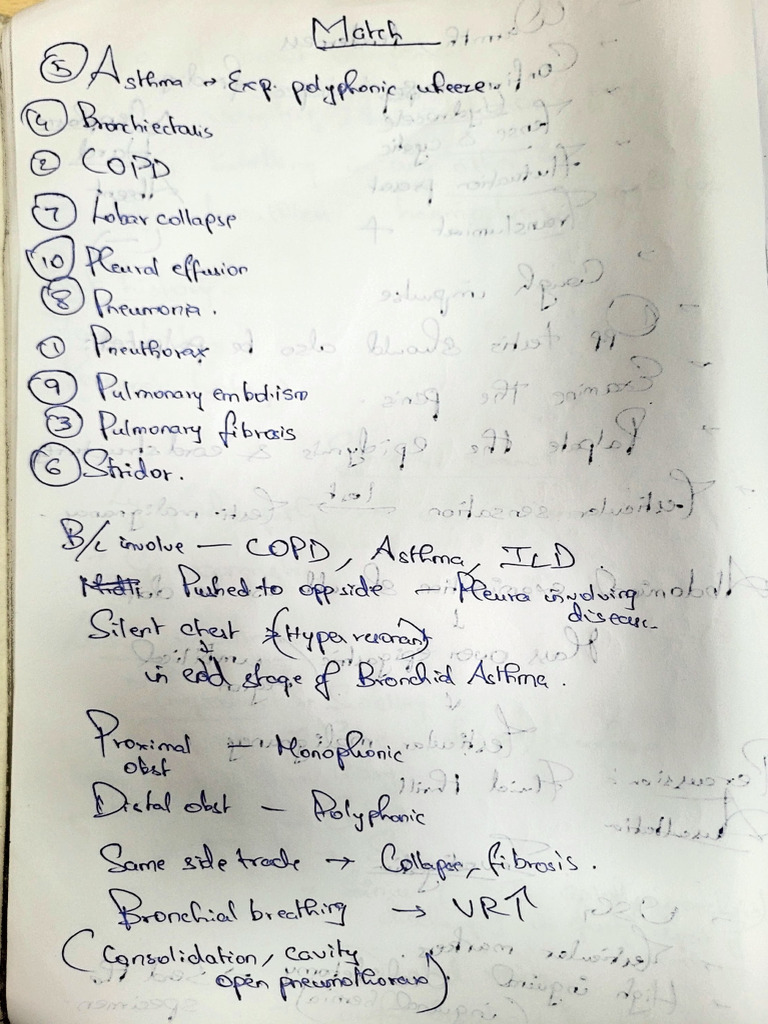 Match
⑤ Asthma → Exp. polyphonic wheeze.
④ Bronchiectasis
② COPD
⑦ Lobar collapse
⑩ Pleural effusion
⑧ Pneumonia.
① Pneuthorax
⑨ Pulmonary embolism
③ Pulmonary fibrosis
⑥ Stridor.
B/L involve — COPD, Asthma, ILD
Pushed to opp side — Pleura involving
disease
Silent chest (Hyper resonant)
in end stage of Bronchial Asthma.
Proximal — Monophonic
obst
Distal obst — Polyphonic
Same side trache → Collapse, fibrosis.
Bronchial breathing → VR↑
(Consolidation, cavity
open pneumothorax)